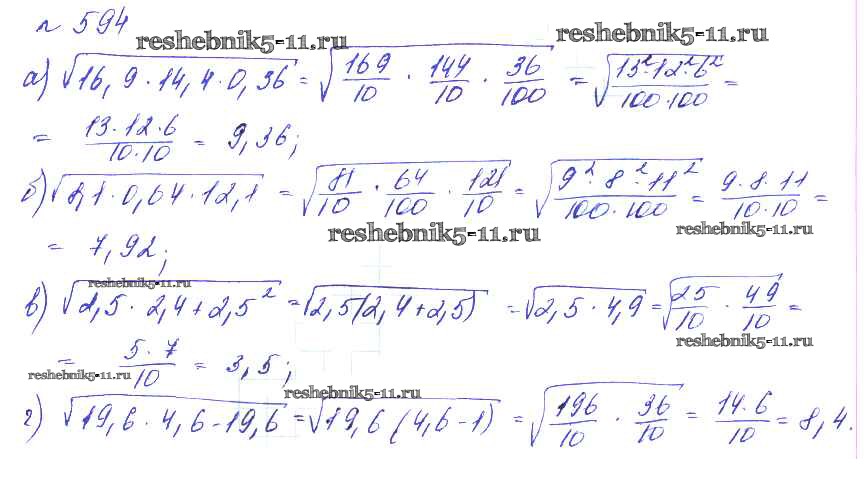 № 594
reshebnik5-11.ru reshebnik5-11.ru
а) √(16,9 · 14,4 · 0,36) = √(169/10 · 144/10 · 36/100) = √((13² · 12² · 6²)/(100 · 100)) =
= (13 · 12 · 6)/(10 · 10) = 9,36;
б) √(8,1 · 0,64 · 12,1) = √(81/10 · 64/100 · 121/10) = √((9² · 8² · 11²)/(100 · 100)) = (9 · 8 · 11)/(10 · 10) =
= 7,92;
reshebnik5-11.ru reshebnik5-11.ru
reshebnik5-11.ru
в) √(2,5 · 2,4 + 2,5²) = √(2,5(2,4 + 2,5)) = √(2,5 · 4,9) = √(25/10 · 49/10) =
reshebnik5-11.ru
= (5 · 7)/10 = 3,5;
reshebnik5-11.ru
reshebnik5-11.ru
г) √(19,6 · 4,6 - 19,6) = √(19,6(4,6 - 1)) = √(196/10 · 36/10) = (14 · 6)/10 = 8,4.